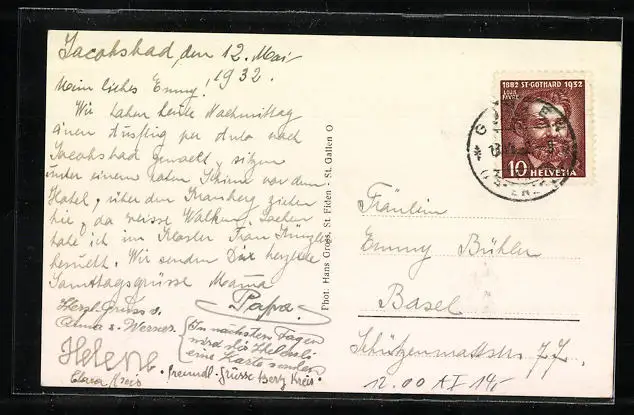 Jacobsbad, den 12. Mai
1932.
Mein liebes Emmy!
Wir haben heute Nachmittag
einen Ausflug per Auto nach
Jacobsbad gemacht, sitzen
unter einem roten Schirm vor dem
Hotel, über den Kronberg ziehen
sie, da weisse Wolken, soeben
habe ich im Kloster Frau Künzler
besucht. Wir senden Dir herzliche
Samttagsgrüsse Mama
Papa.
Herzl. Gruss v.
Alma & Werner.
(In nächsten Tagen
wird dir
eine Karte senden
Helene.
Clara Kreis
freundl. Grüsse Berty Kreis.
Phot. Hans Gross, St. Fiden - St. Gallen O
1882 ST-GOTHARD 1932
LOUIS
FAVRE
10 HELVETIA
Fräulein
Emmy Bühler
Basel
Schützenmattstr. 77.
12.00